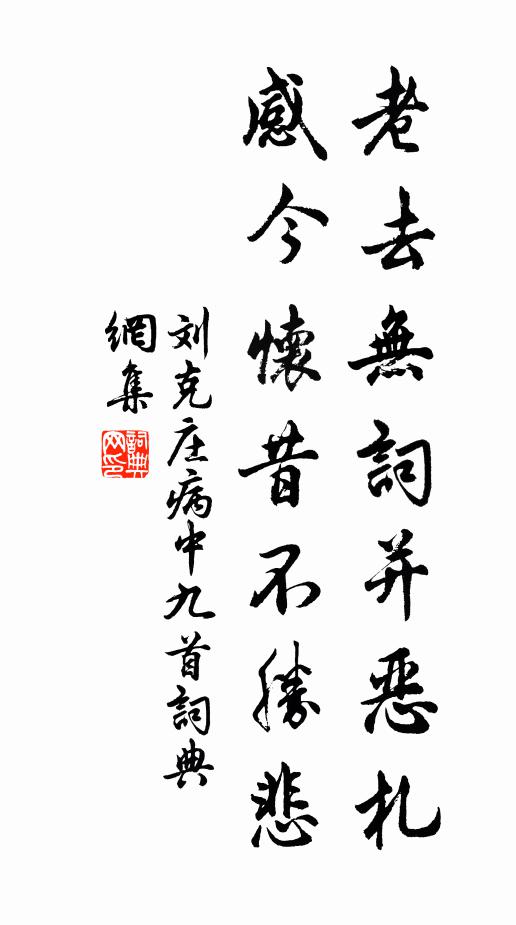 老去無詞并惡札
感今懷昔不勝悲
刘克庄病中九首詞典
網集
詞典网印